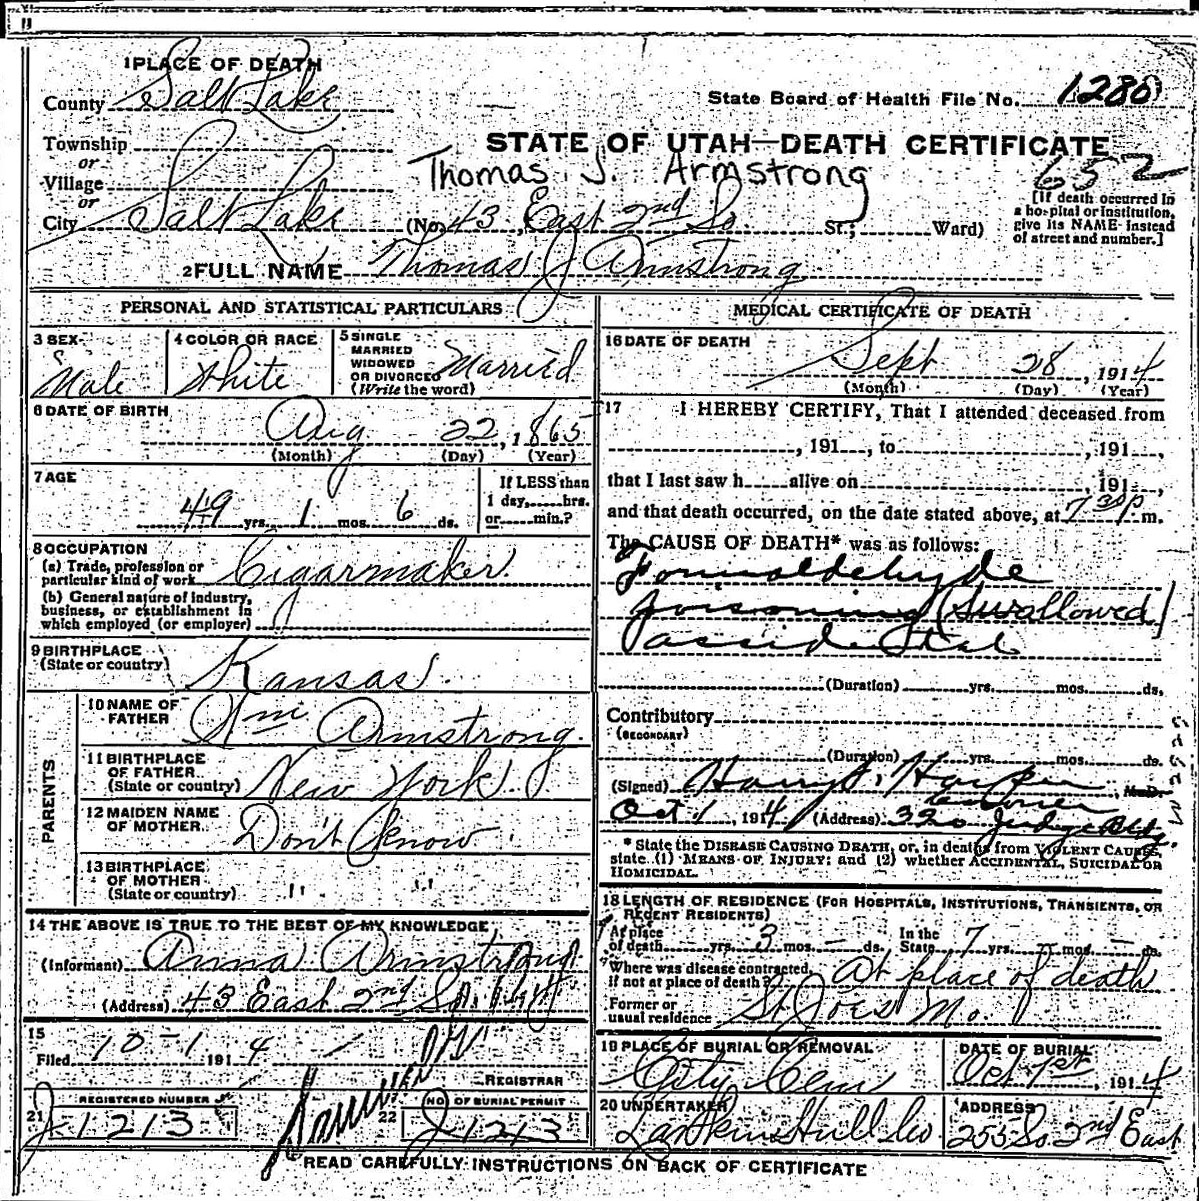 1 PLACE OF DEATH
County Salt Lake
State Board of Health File No. 1280
Township
or
Village
or
City Salt Lake
STATE OF UTAH—DEATH CERTIFICATE
Thomas J. Armstrong
652
(No. 43, East 2nd So. St.; Ward)
[If death occurred in
a hospital or institution,
give its NAME instead
of street and number.]
2 FULL NAME Thomas J Armstrong
PERSONAL AND STATISTICAL PARTICULARS
3 SEX Male
4 COLOR OR RACE White
5 SINGLE
MARRIED
WIDOWED
OR DIVORCED
(Write the word) Married
6 DATE OF BIRTH
Aug 22, 1865
(Month) (Day) (Year)
7 AGE
49 yrs. 1 mos. 6 ds.
If LESS than
1 day, hrs.
or min.?
8 OCCUPATION
(a) Trade, profession or
particular kind of work Cigarmaker
(b) General nature of industry,
business, or establishment in
which employed (or employer)
9 BIRTHPLACE
(State or country) Kansas
PARENTS
10 NAME OF
FATHER Wm Armstrong
11 BIRTHPLACE
OF FATHER
(State or country) New York
12 MAIDEN NAME
OF MOTHER Don't know
13 BIRTHPLACE
OF MOTHER
(State or country) " "
14 THE ABOVE IS TRUE TO THE BEST OF MY KNOWLEDGE
(Informant) Anna Armstrong
(Address) 43 East 2nd So.
15
Filed 10-1 1914
REGISTRAR
21 REGISTERED NUMBER
J-1213
22 NO. OF BURIAL PERMIT
J-1213
MEDICAL CERTIFICATE OF DEATH
16 DATE OF DEATH
Sept 28, 1914
(Month) (Day) (Year)
17 I HEREBY CERTIFY, That I attended deceased from
, 191 , to , 191 ,
that I last saw h alive on , 191 ,
and that death occurred, on the date stated above, at 7 30 p m.
The CAUSE OF DEATH* was as follows:
Formaldehyde
poisoning (Swallowed)
accidental
(Duration) yrs. mos. ds.
Contributory
(SECONDARY)
(Duration) yrs. mos. ds.
(Signed) Harry J. Harper, M.D.
Coroner
Oct 1, 1914 (Address) 320 Judge Bldg.
* State the DISEASE CAUSING DEATH, or, in deaths from VIOLENT CAUSES,
state (1) MEANS OF INJURY; and (2) whether ACCIDENTAL, SUICIDAL OR
HOMICIDAL.
18 LENGTH OF RESIDENCE (FOR HOSPITALS, INSTITUTIONS, TRANSIENTS, OR
RECENT RESIDENTS)
At place
of death yrs. 3 mos. – ds. In the
State 7 yrs. – mos. – ds.
Where was disease contracted,
if not at place of death? At place of death
Former or
usual residence St Joes Mo.
19 PLACE OF BURIAL OR REMOVAL
City Cem
DATE OF BURIAL
Oct 1st, 1914
20 UNDERTAKER
ADDRESS
255 So 2nd East
READ CAREFULLY INSTRUCTIONS ON BACK OF CERTIFICATE